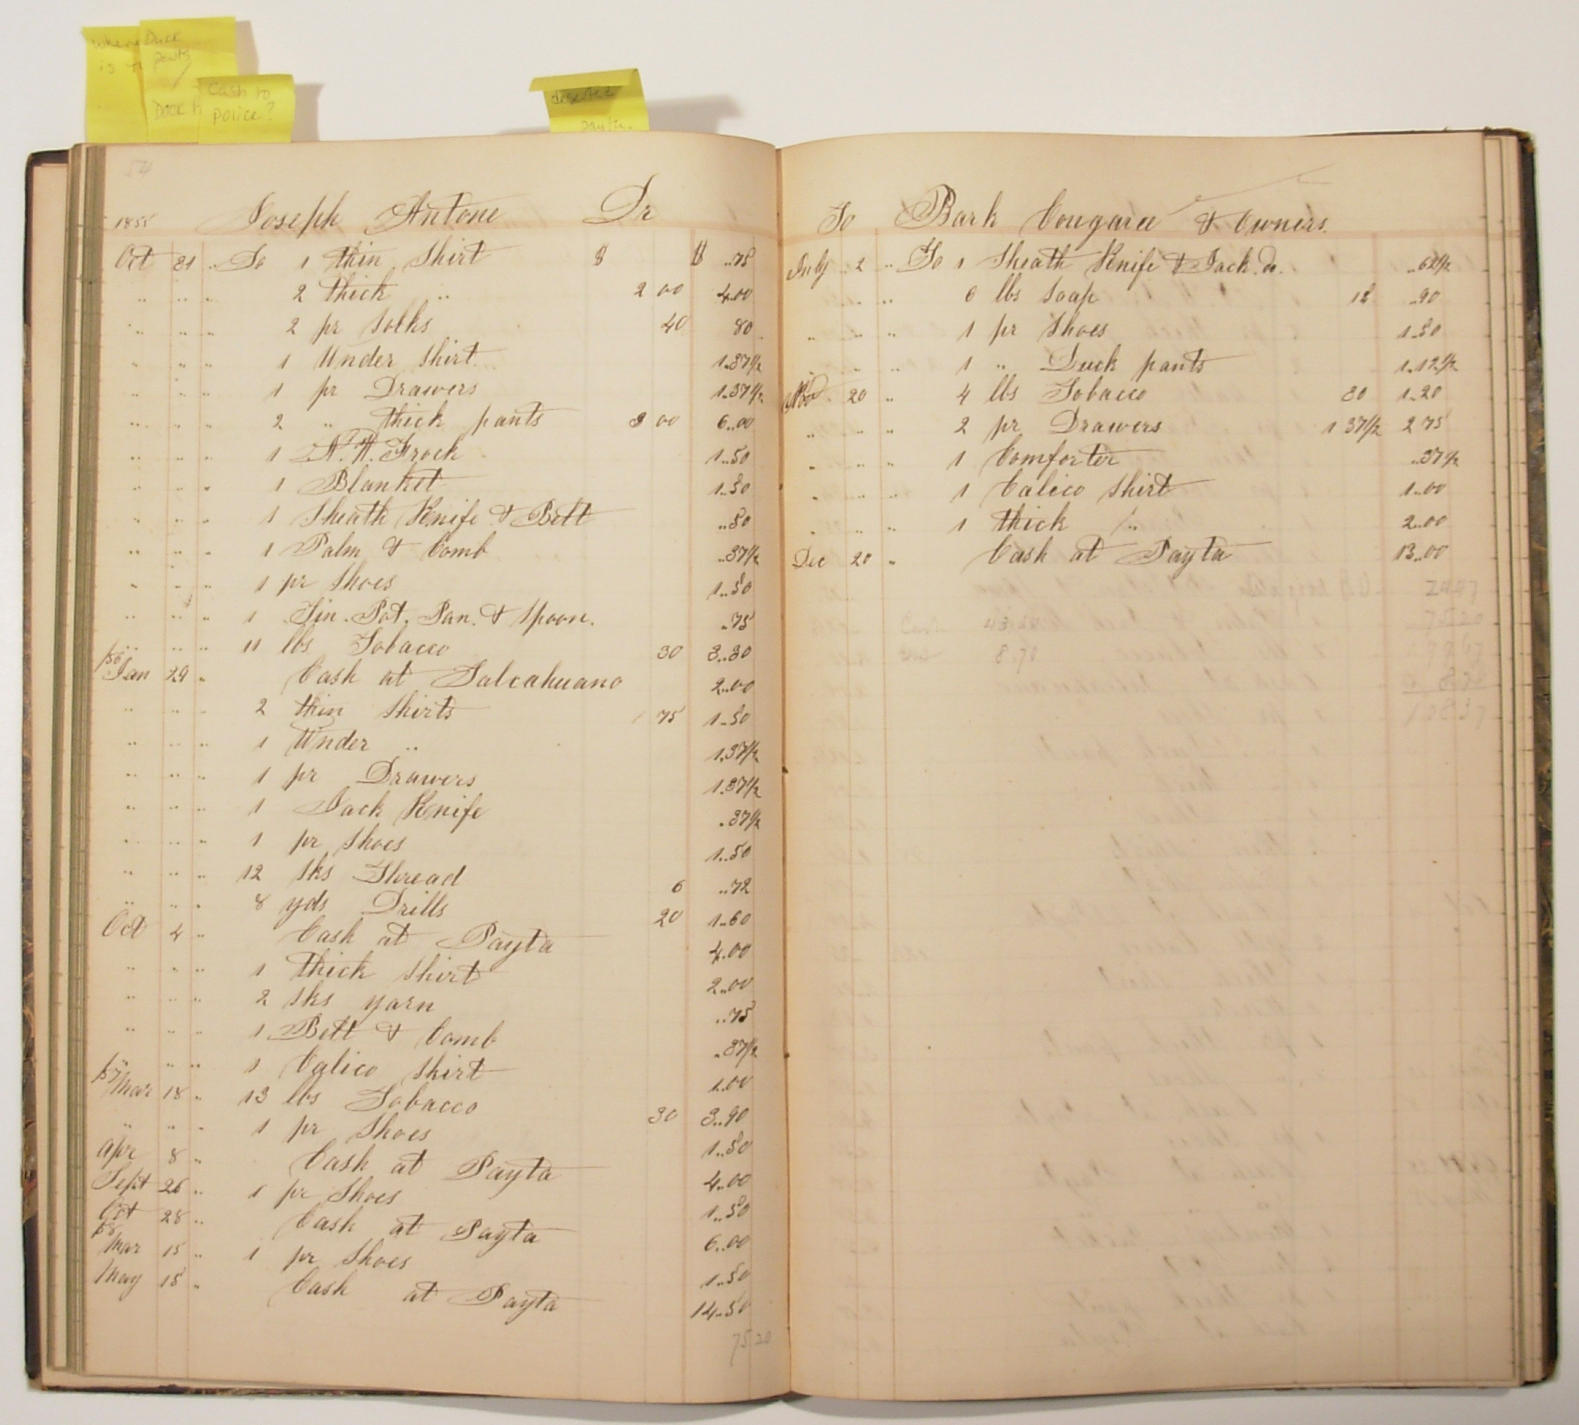 Duck
pants
Cash to
police?
54
1855 Joseph Antone Dr
Oct 21 .. To 1 thin Shirt $ $ ..75
.. .. .. 2 thick .. 2 00 4.00
.. .. .. 2 pr Socks 40 80
.. .. .. 1 Under Shirt 1.37½
.. .. .. 1 pr Drawers 1.37½
.. .. .. 2 .. thick pants 3 00 6..00
.. .. .. 1 Frock 1..50
.. .. .. 1 Blanket 1..50
.. .. .. 1 Sheath Knife & Belt ..50
.. .. .. 1 Palm & Comb ..37½
.. .. .. 1 pr Shoes 1..50
.. .. .. 1 Tin. Pot. Pan. & Spoon. ..75
.. .. .. 11 lbs Tobacco 30 3..30
/56 Jan 29 .. Cash at Talcahuano 2..00
.. .. .. 2 thin Shirts 75 1..50
.. .. .. 1 Under .. 1.37½
.. .. .. 1 pr Drawers 1.37½
.. .. .. 1 Jack Knife .37½
.. .. .. 1 pr Shoes 1..50
.. .. .. 12 sks Thread 6 ..72
.. .. .. 8 yds Drills 20 1..60
Oct 4 .. Cash at Payta 4.00
.. .. .. 1 thick Shirt 2..00
.. .. .. 2 sks yarn ..75
.. .. .. 1 Belt & Comb .37½
.. .. .. 1 Calico Shirt 1.00
/57 Mar 18 .. 13 lbs Tobacco 30 3..90
.. .. .. 1 pr Shoes 1..50
Apr 8 .. Cash at Payta 4..00
Sept 26 .. 1 pr Shoes 1..50
Oct 28 .. Cash at Payta 6..00
/58 Mar 15 .. 1 pr Shoes 1..50
May 15 .. Cash at Payta 14..50
75 20
To Bark Congaree & Owners.
July 2 .. To 1 Sheath Knife & Jack. do. ..62½
.. .. 6 lbs Soap 15 ..90
.. .. .. 1 pr Shoes 1..50
.. .. .. 1 .. Duck pants 1..12½
Nov 20 .. 4 lbs Tobacco 30 1..20
.. .. .. 2 pr Drawers 1 37½ 2 75
.. .. .. 1 Comforter ..37½
.. .. .. 1 Calico Shirt 1..00
.. .. .. 1 thick .. 2..00
Dec 20 .. Cash at Payta 13..00
24 47
75 20
8.70